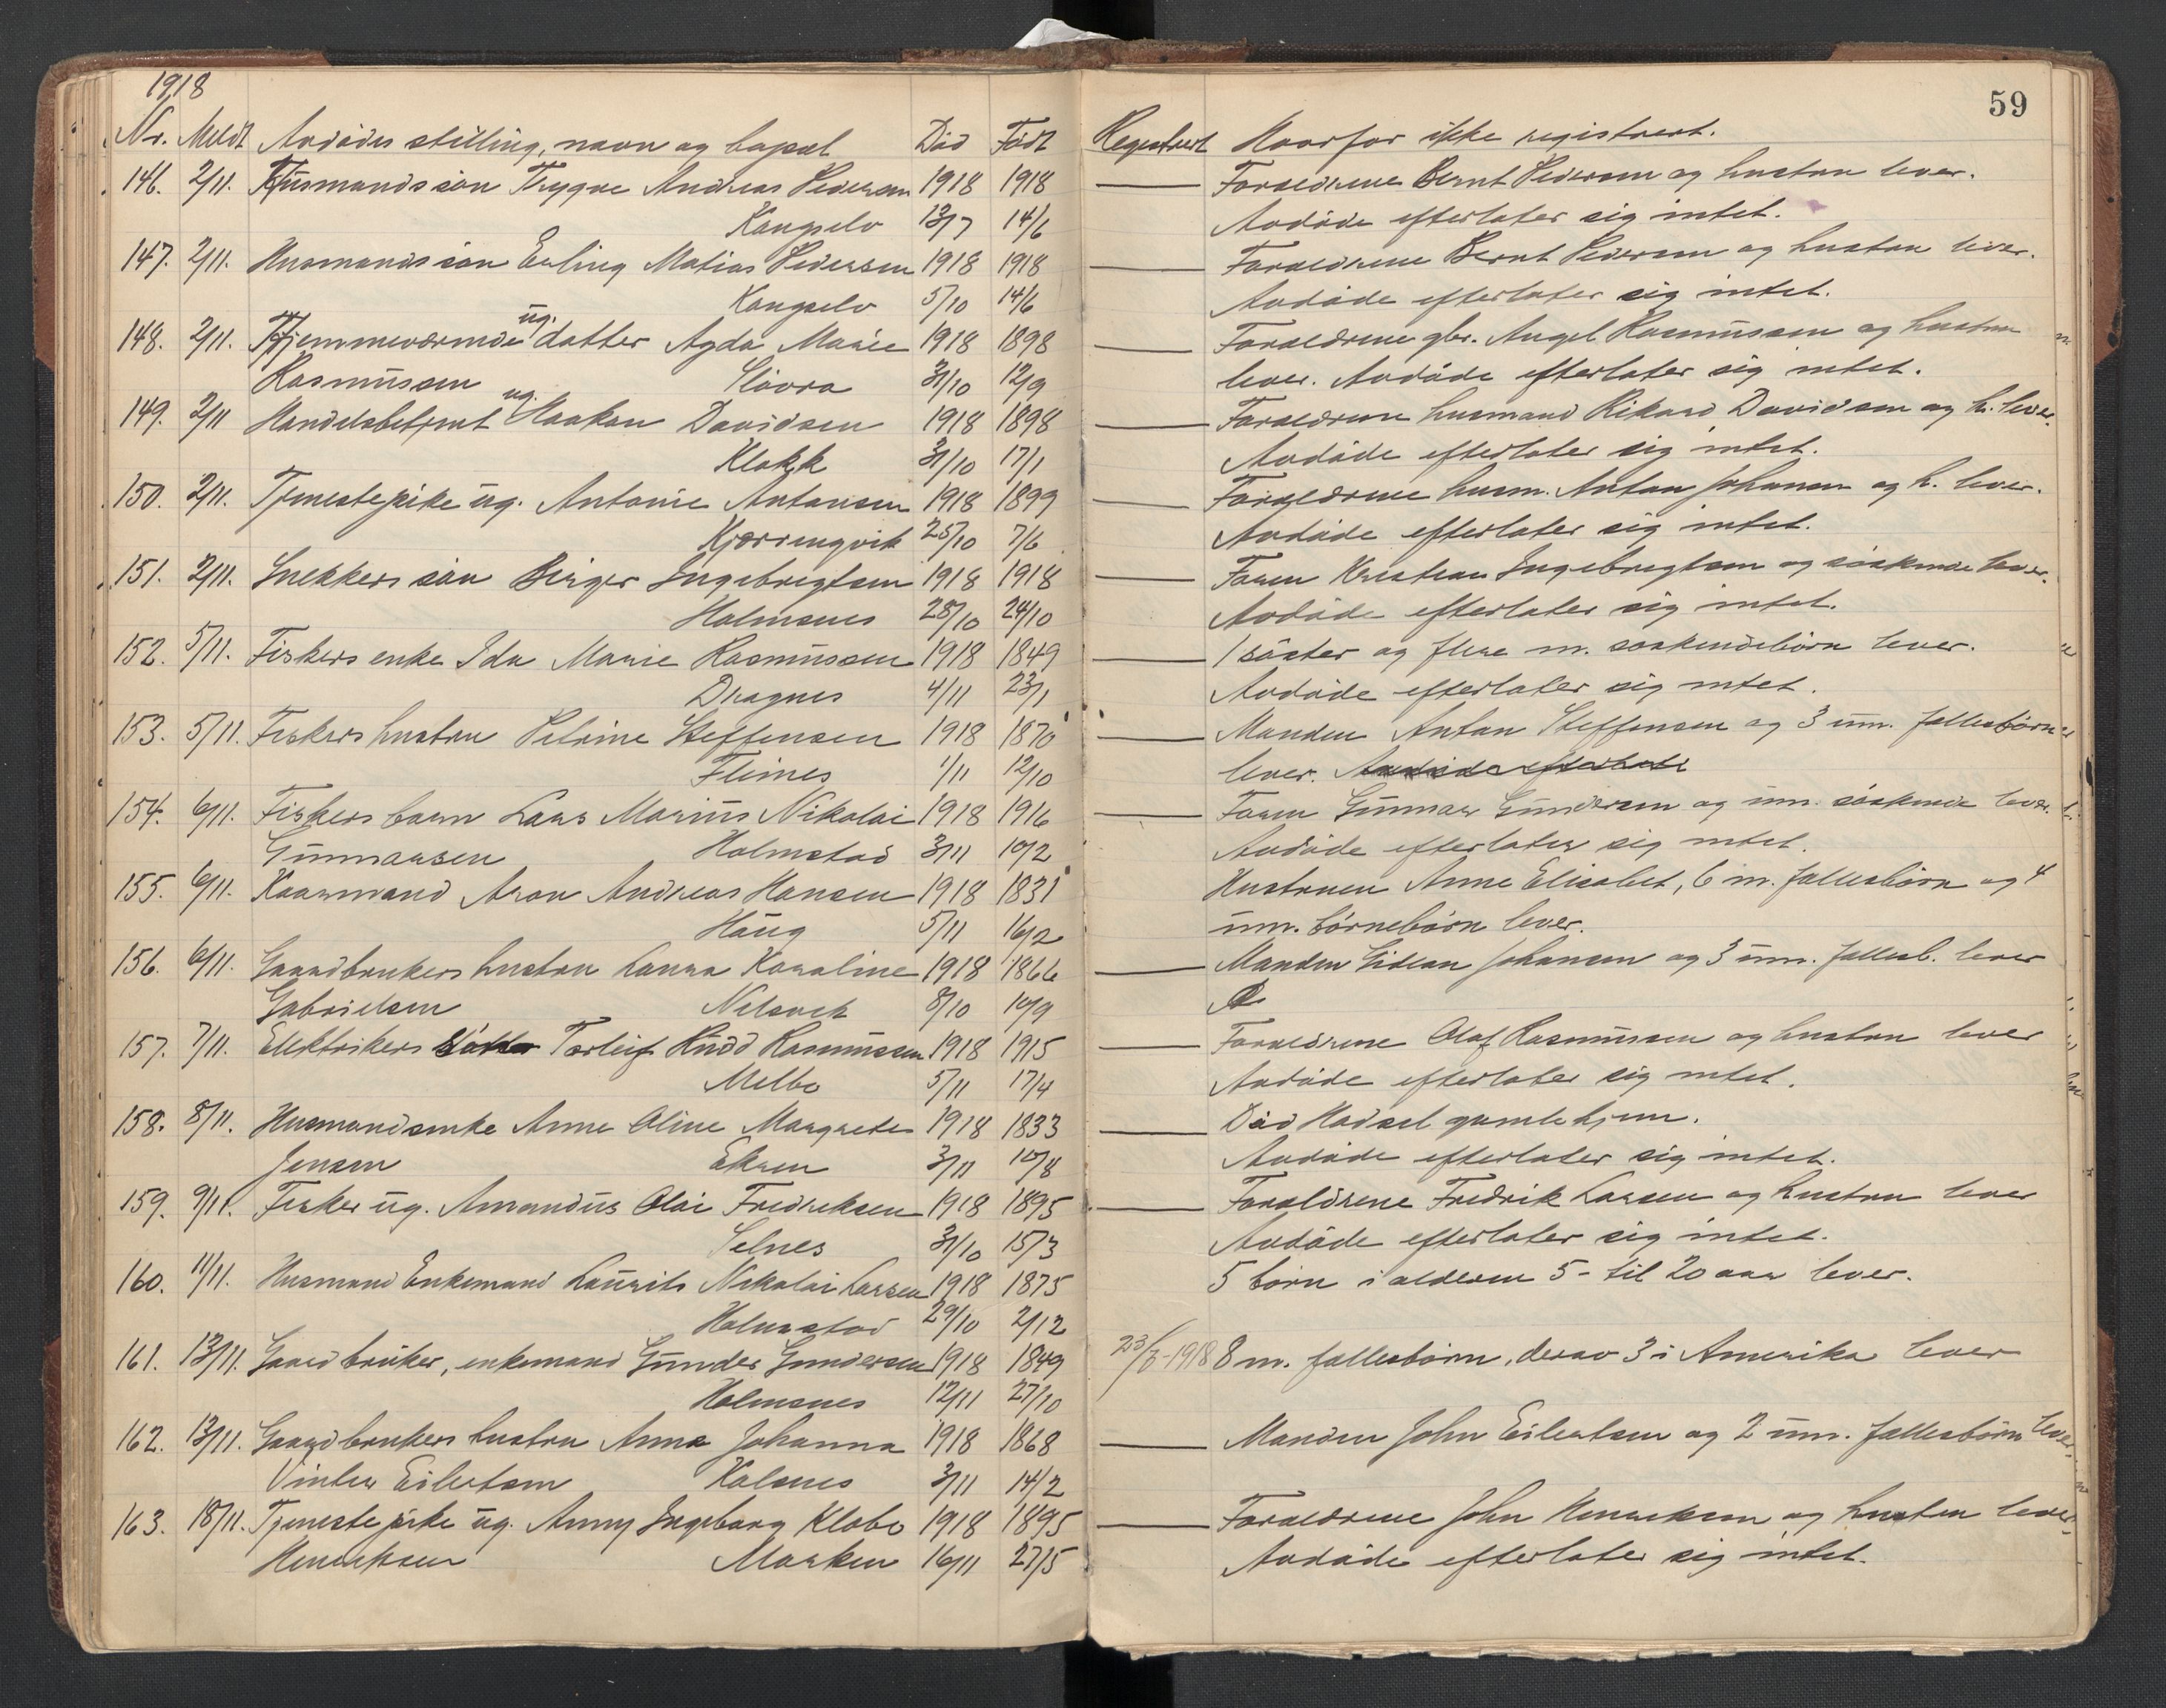 1918
59
Nr. Meldt Avdødes stilling, navn og bopæl Død Født Registrert Hvorfor ikke registrert.
146. 2/11. Husmands søn Trygve Andreas Pedersen 1918 1918 Forældrene Bernt Pedersen og hustru lever.
Kongselv 13/7 14/6 Avdøde efterlater sig intet.
147. 2/11. Husmands søn Erling Matias Pedersen 1918 1918 Forældrene Bernt Pedersen og hustru lever.
Kongselv 5/10 14/6 Avdøde efterlater sig intet.
148. 2/11. Hjemmeværende ug. datter Agda Marie 1918 1898 Forældrene gbr. Angel Rasmussen og hustru
Rasmussen Slåvra 31/10 12/9 lever. Avdøde efterlater sig intet.
149. 2/11 Handelsbetjent ug. Haakon Davidsen 1918 1898 Forældrene husmand Rikard Davidsen og h. lever.
Klakk 31/10 17/1 Avdøde efterlater sig intet.
150. 2/11. Tjenestepike ug. Antonie Antonsen 1918 1899 Forældrene husm. Anton Johansen og h. lever.
Kjærringvik 25/10 7/6 Avdøde efterlater sig intet.
151. 2/11. Snekkers søn Birger Ingebrigtsen 1918 1918 Faren Kristian Ingebrigtsen og søskende lever.
Holmsnes 28/10 24/10 Avdøde efterlater sig intet.
152. 5/11. Fiskers enke Ida Marie Rasmussen 1918 1849 1 søster og flere m. søskendebørn lever.
Dragnes 4/11 23/1 Avdøde efterlater sig intet.
153. 5/11. Fiskers hustru Petrine Steffensen 1918 1870 Manden Anton Steffensen og 3 um. fællesbørn
Fleines 1/11 12/10 lever. Avdøde efterlate
154. 6/11. Fiskers barn Lars Marius Nikolai 1918 1916 Faren Gunnar Gundersen og um. søskende lever.
Gunnarsen Holmstad 3/11 10/2 Avdøde efterlater sig intet.
155. 6/11. Kaarmand Aron Andreas Hansen 1918 1831 Hustruen Anne Elisabet, 6 m. fællesbørn og 4
Haug 5/11 16/2 um. børnebørn lever.
156. 6/11. Gaardbrukers hustru Laura Karoline 1918 1866 Manden Gideon Johansen og 3 um. fællesb. lever
Gabrielsen 8/10 10/9
157. 7/11. Elektrikers Torleif Knud Rasmussen 1918 1915 Forældrene Olaf Rasmussen og hustru lever
Melbo 5/11 17/4 Avdøde efterlater sig intet.
158. 8/11. Husmandsenke Anne Oline Margrete 1918 1833 Død Hadsel gamlehjem.
Jensen Ekren 3/11 10/8 Avdøde efterlater sig intet.
159. 9/11. Fisker ug. Amandus Olai Fredriksen 1918 1895 Forældrene Fredrik Larsen og hustru lever
Selnes 31/10 15/3 Avdøde efterlater sig intet.
160. 11/11. Husmand Enkemand Laurits Nikolai Larsen 1918 1875 5 børn i alderen 5- til 20 aar lever.
Holmstad 29/10 2/12
161. 13/11. Gaardbruker, enkemand Gunder Gundersen 1918 1849 8 m. fællesbørn, derav 3 i Amerika lever
Holmsnes 12/11 27/10
162. 13/11. Gaardbrukers hustru Anna Johanna 1918 1868 Manden John Eilertsen og 2 um. fællesbørn lever.
Vinter Eilertsen Kalsnes 3/11 14/2
163. 18/11. Tjenestepike ug. Anny Ingeborg Klobo 1918 1895 Forældrene John Henriksen og hustru lever.
Henriksen Marken 16/11 27/5 Avdøde efterlater sig intet.